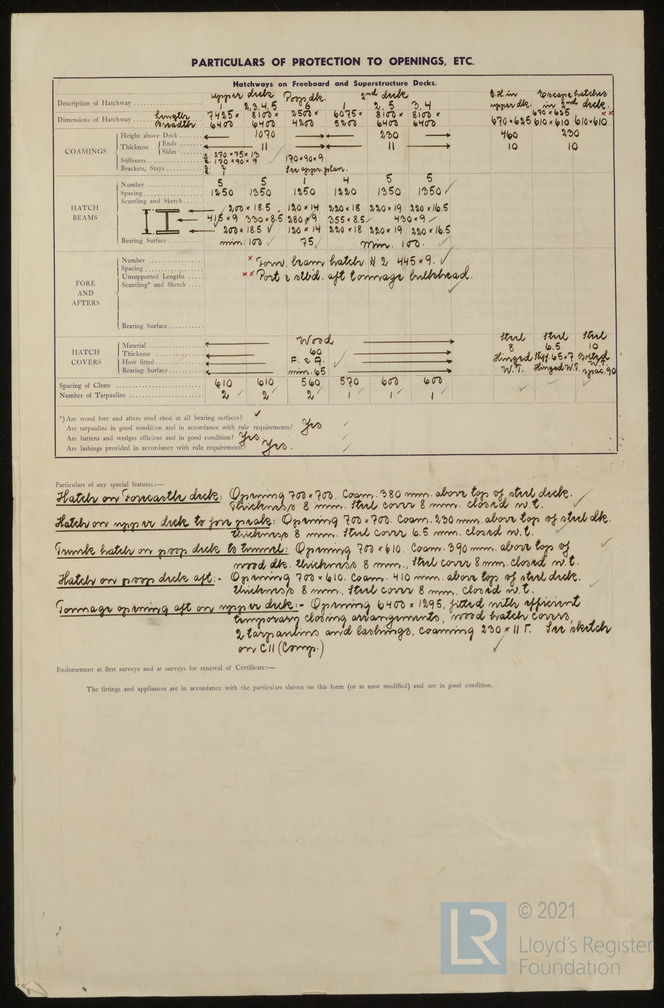 PARTICULARS OF PROTECTION TO OPENINGS, ETC.
Hatchways on Freeboard and Superstructure Decks.
upper deck Poop dk. 2nd deck B.H. in Escape hatches
Description of Hatchway 1 2,3,4,5 6 1 2, 5 3, 4 upper dk. in 2nd deck.
Dimensions of Hatchway Length 7425 × 8100 × 2500 × 6075 × 8100 × 8100 × 670 × 625 × ×
Breadth 6400 6400 4200 5200 6400 6400 670 × 625 610 × 610 610 × 610
COAMINGS
Height above Deck 1070 230 460 230
Thickness Ends 11 11 10 10
Sides
Stiffeners 270 × 75 × 13 170 × 90 × 9
Brackets, Stays See appr. plan.
HATCH BEAMS
Number 5 5 1 4 5 5
Spacing 1250 1350 1250 1220 1350 1350 ✓
Scantling and Sketch 200 × 18.5 120 × 14 220 × 18 220 × 19 220 × 16.5
415 × 9 330 × 8.5 280 × 9 355 × 8.5 430 × 9
200 × 18.5 120 × 14 220 × 18 220 × 19 220 × 16.5
Bearing Surface min. 100 75 Min. 100.
FORE AND AFTERS
Number * Forw. beam hatch № 2 445 × 9.
Spacing
Unsupported Lengths ** Port & stbd. aft tonnage bulkhead.
Scantling* and Sketch
Bearing Surface
HATCH COVERS
Material Wood Steel Steel Steel
Thickness 60 8 6.5 10
How fitted F. & A. Hinged Stiff. 65 × 7 Bolted
Bearing Surface min. 65 W.T. Hinged W.T. spac. 90
Spacing of Cleats 610 610 560 570 600 600
Number of Tarpaulins 2 2 2 1 1 1
*) Are wood fore and afters steel shod at all bearing surfaces? ✓
Are tarpaulins in good condition and in accordance with rule requirements? Yes
Are battens and wedges efficient and in good condition? Yes
Are lashings provided in accordance with rule requirements? Yes.
Particulars of any special features:—
Hatch on Forecastle deck: Opening 700 × 700. Coam. 380 mm. above top of steel deck.
Thickness 8 mm. Steel cover 8 mm. closed w.t.
Hatch on upper deck to fore peak: Opening 700 × 700. Coam. 230 mm above top of steel dk.
thickness 8 mm. Steel cover 6.5 mm. closed w.t.
Trunk hatch on poop deck to tunnel: Opening 700 × 610. Coam. 390 mm. above top of
wood dk. thickness 8 mm., Steel cover 8 mm. closed w.t.
Hatch on poop deck aft:- Opening 700 × 610. Coam. 410 mm. above top of steel deck.
thickness 8 mm. Steel cover 8 mm. closed w.t.
Tonnage opening aft on upper deck:- Opening 6400 × 1295, fitted with efficient
temporary closing arrangements, wood hatch covers,
2 tarpaulins and lashings, coaming 230 × 11 Γ. See sketch
on C11 (Comp.)
Endorsement at first surveys and at surveys for renewal of Certificate:—
The fittings and appliances are in accordance with the particulars shown on this form (or as now modified) and are in good condition.
LR
© 2021
Lloyd's Register
Foundation